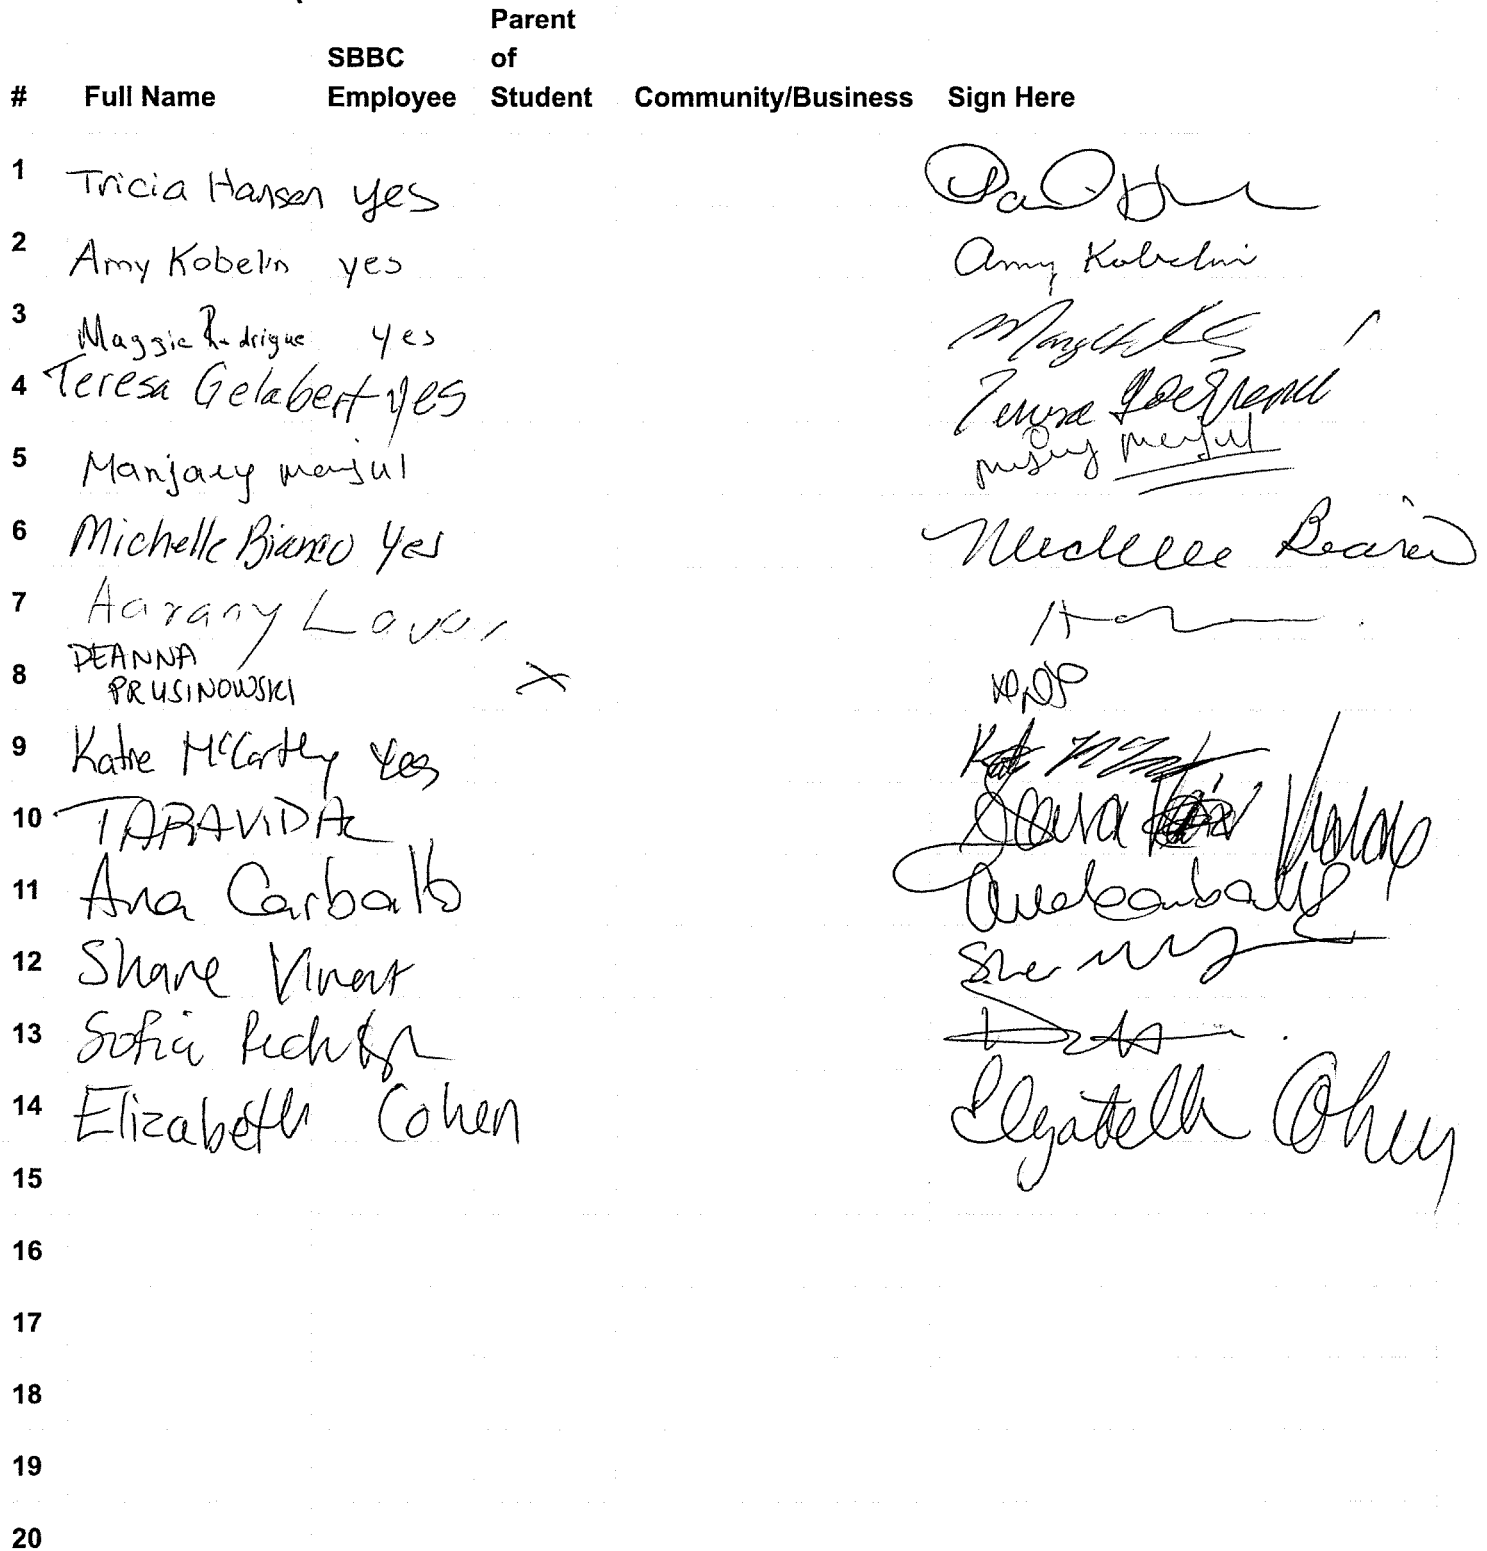 Parent
SBBC of
# Full Name Employee Student Community/Business Sign Here
1 Tricia Hansen yes
2 Amy Kobelin yes Amy Kobelin
3 Maggie Rodrigue yes
4 Teresa Gelabert yes Teresa
5 Manjary manjul manjul
6 Michelle Bianco Yes Michelle Bianco
7 Aarany
8 DEANNA
PRUSINOWSKI X
9 Katie McCarthy Yes
10 TARAVIDAL
11 Ana Carballo Ana Carballo
12 Shane Vinent
13 Sofia
14 Elizabeth Cohen Elizabeth Cohen
15
16
17
18
19
20